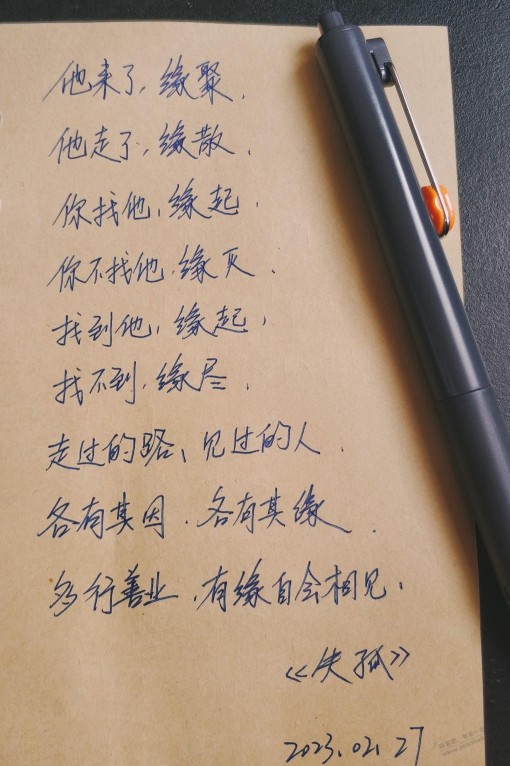 他来了,缘聚.
他走了,缘散.
你找他,缘起.
你不找他.缘灭.
找到他,缘起,
找不到.缘尽.
走过的路、见过的人.
各有其因.各有其缘.
多行善业,有缘自会相见.
《失孤》
2023.02.27